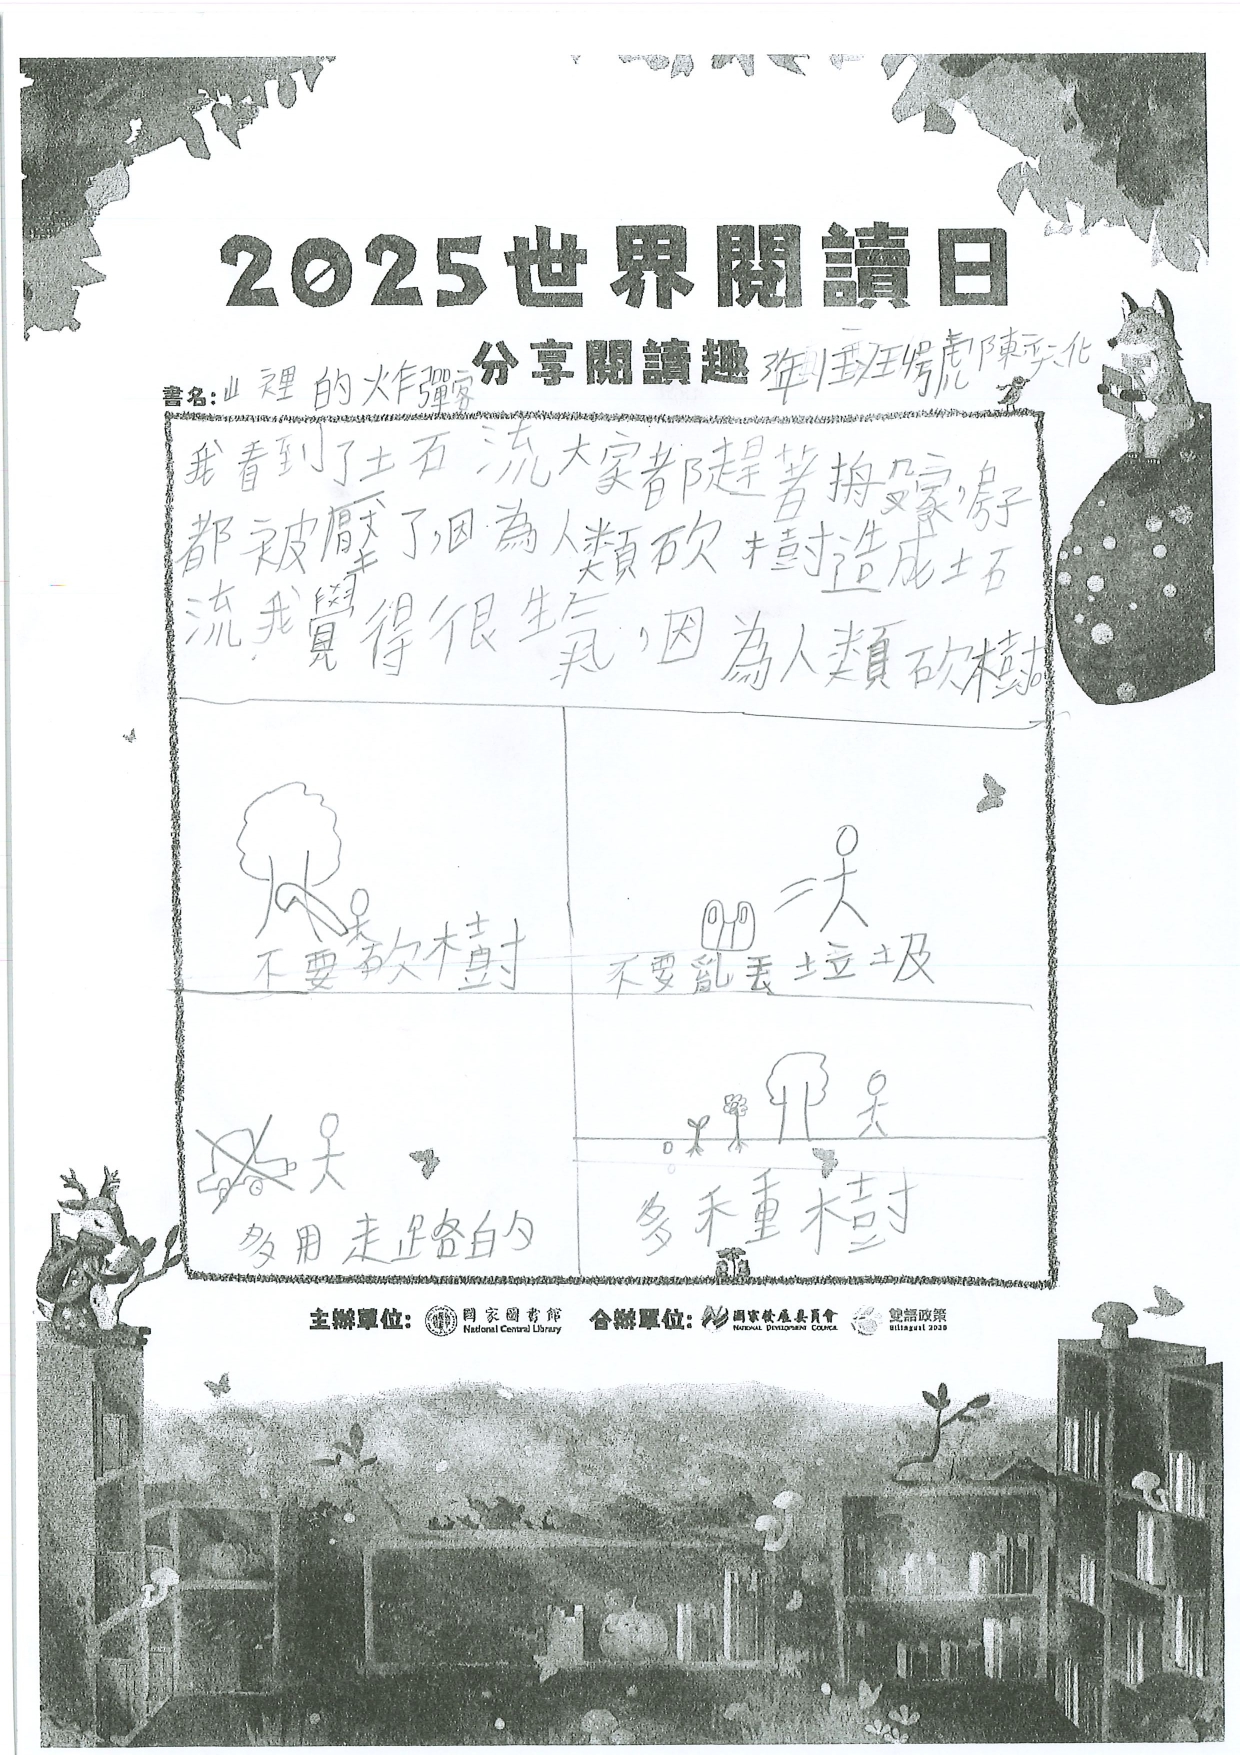 2025世界閱讀日
分享閱讀趣
3年1班4號陳奕化
書名:山裡的炸彈客
我看到了土石流大家都趕著搬家,房子
都被壓了,因為人類砍樹造成土石
流我覺得很生氣,因為人類砍樹。
不要砍樹
不要亂丟垃圾
多用走路的
多種樹
主辦單位: 國家圖書館 National Central Library 合辦單位: 國家發展委員會 NATIONAL DEVELOPMENT COUNCIL 雙語政策 Bilingual 2030